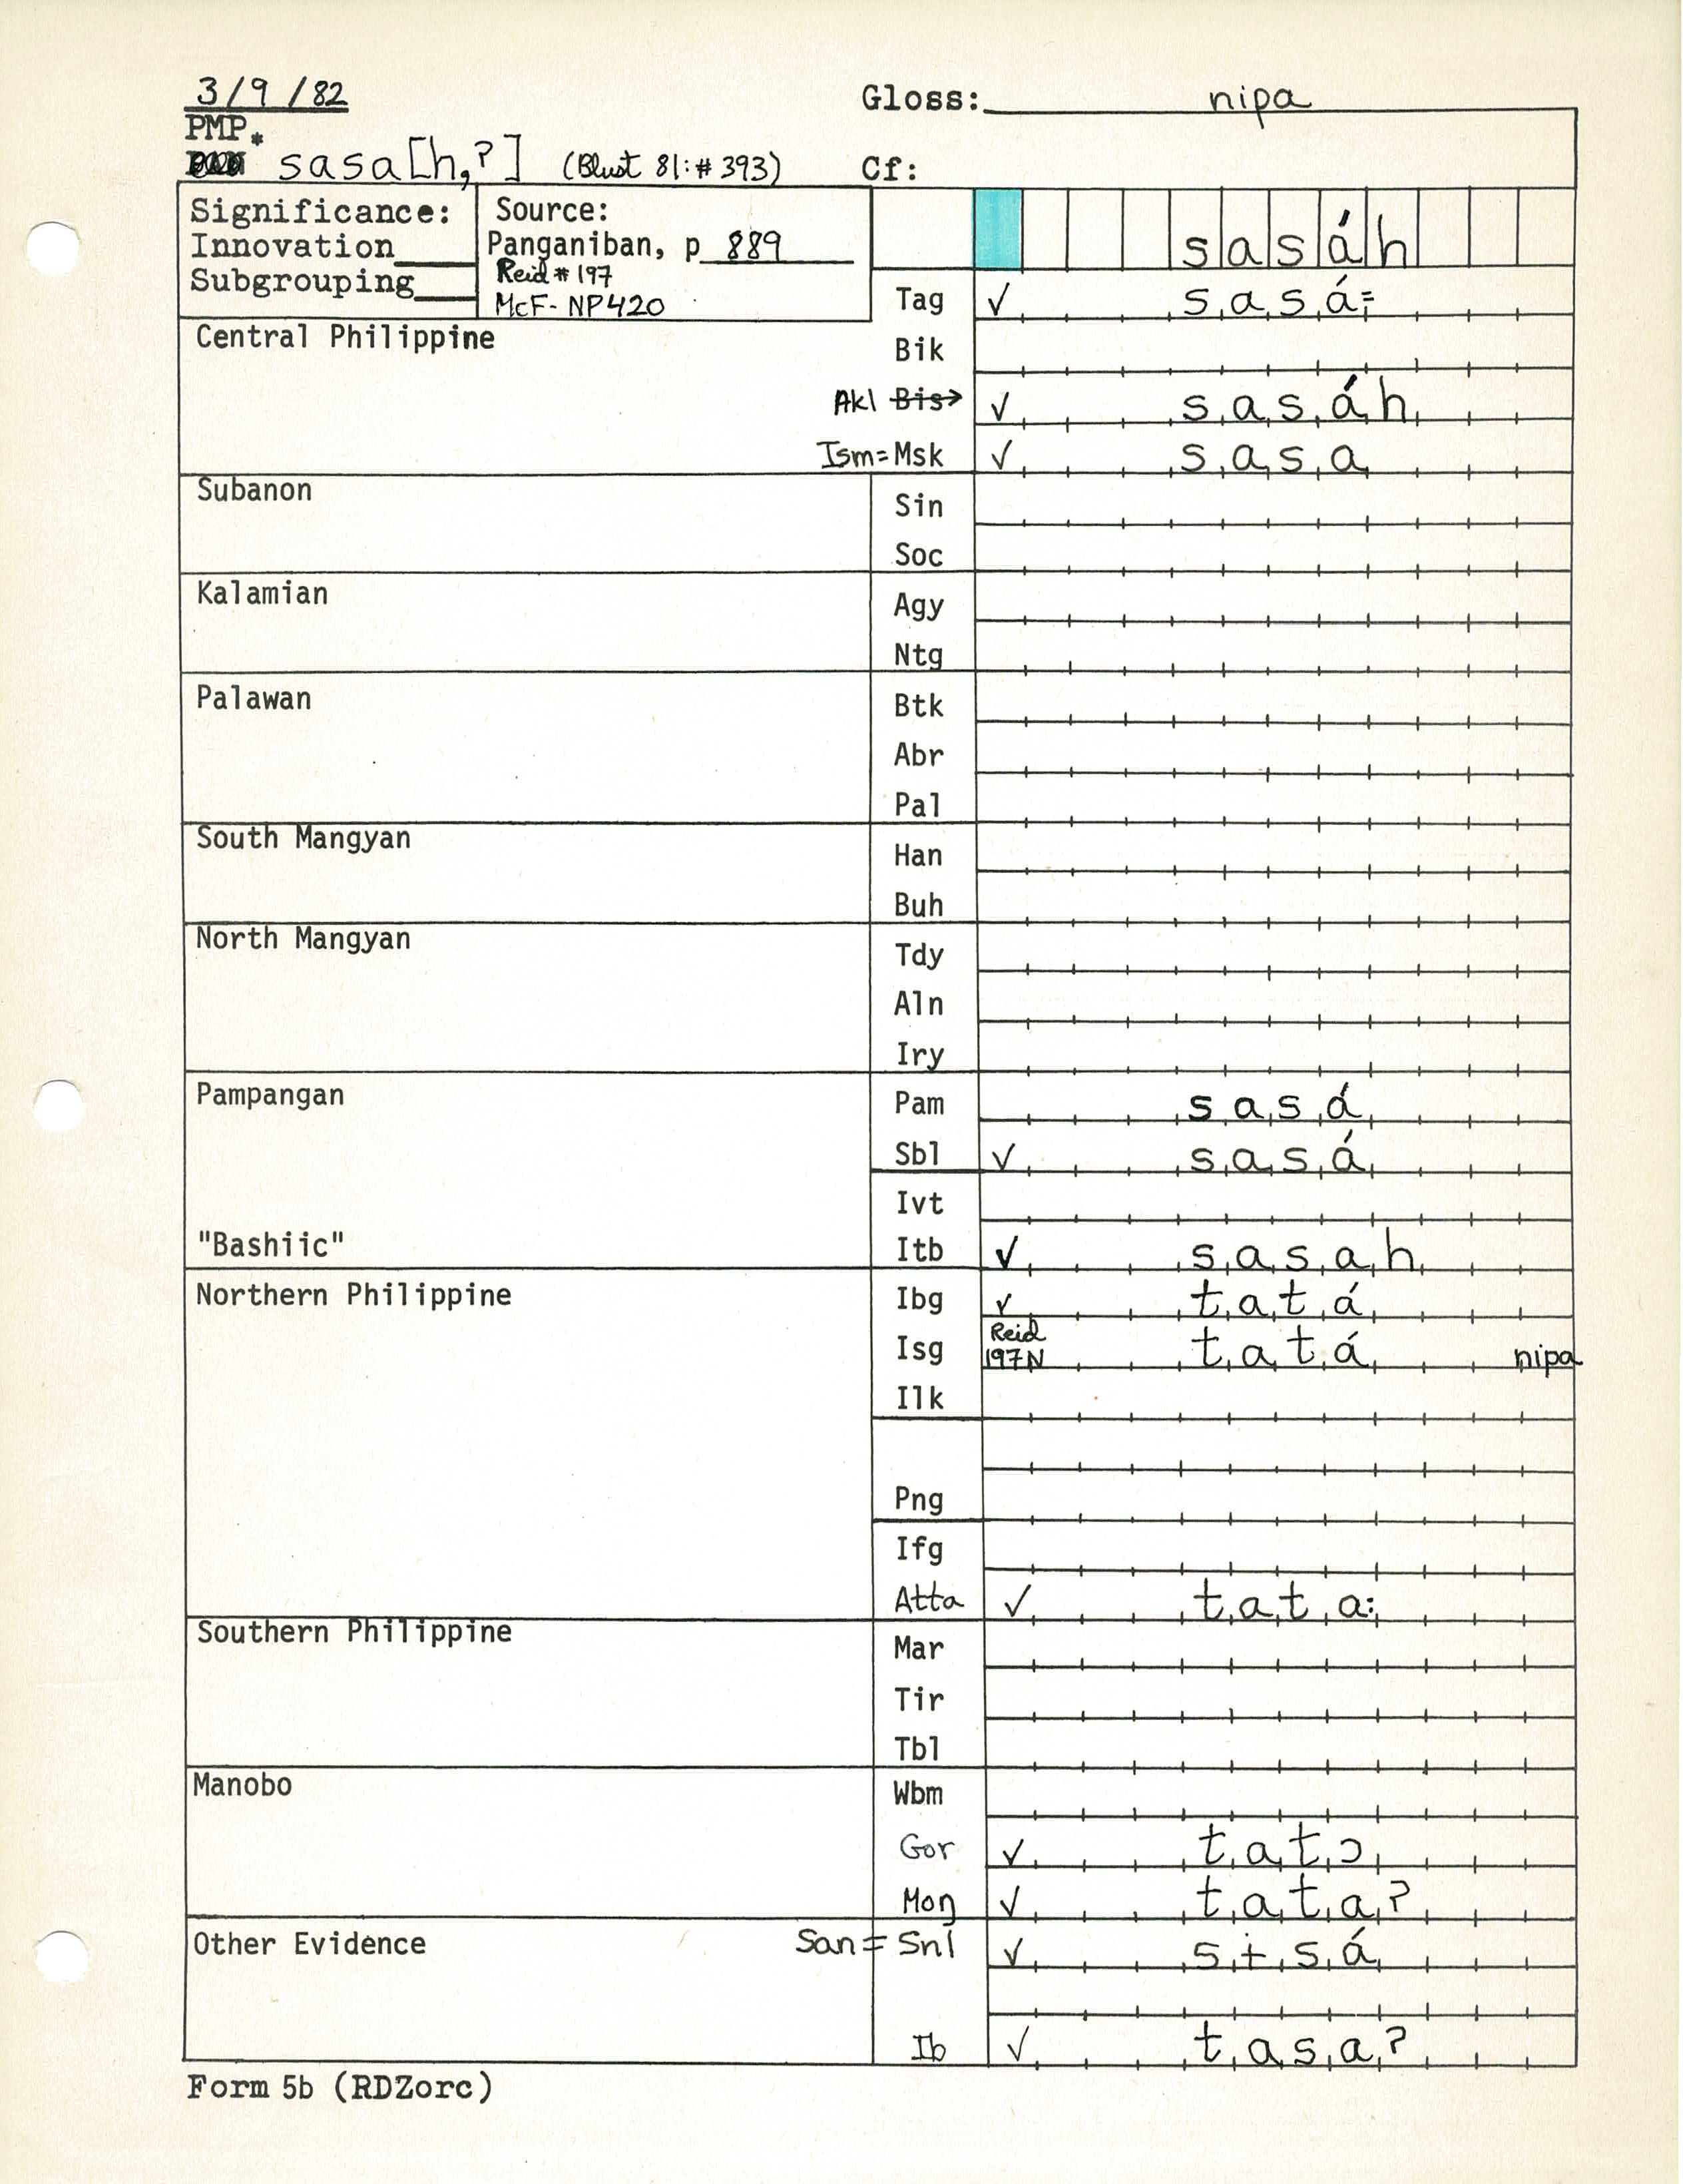 3/9/82
Gloss: nipa
PMP*
sasa[h,ʔ] (Blust 81:#393)
Cf:
Significance:
Innovation
Subgrouping
Source:
Panganiban, p 889
Reid #197
McF-NP420
sasáh
Tag ✓ sasá=
Central Philippine
Bik
Akl Bis→ ✓ sasáh
Ism=Msk ✓ sasa
Subanon
Sin
Soc
Kalamian
Agy
Ntg
Palawan
Btk
Abr
Pal
South Mangyan
Han
Buh
North Mangyan
Tdy
Aln
Iry
Pampangan
Pam sasá
Sbl ✓ sasá
Ivt
"Bashiic"
Itb ✓ sasah
Northern Philippine
Ibg ✓ tatá
Isg Reid 197N tatá nipa
Ilk
Png
Ifg
Atta ✓ tata:
Southern Philippine
Mar
Tir
Tbl
Manobo
Wbm
Gor ✓ tatɔ
Mon ✓ tataʔ
Other Evidence
San = Snl ✓ sɨsá
Ib ✓ tasaʔ
Form 5b (RDZorc)